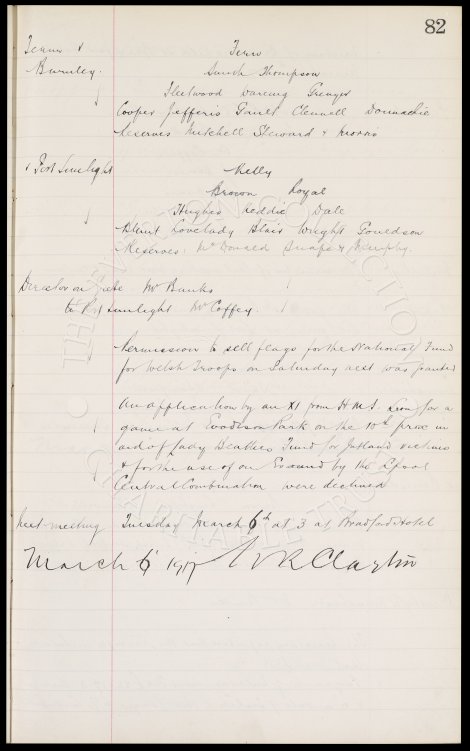 82
Teams v
Burnley.
Fern
Smith Thompson
Fleetwood Wareing Grenyer
Cooper Jefferis Gault Clennell Donnachie
Reserves Mitchell Steward & Morris
v Port Sunlight
Kelly
Brown Royal
Hughes Reddie Dale
Blunt Lovelady Blair Wright Gouldson
Reserves: McDonald Snape & Murphy.
Director in Gate Mr Banks
to Port Sunlight Mr Coffey.
Permission to sell flags for the National Fund
for Welsh Troops on Saturday next was granted
An application by an XI from H.M.S. Lion for a
game at Goodison Park on the 10th prox in
aid of Lady Beatties Fund for Jutland victims
& for the use of our Ground by the L'pool
Central Combination were declined
Next meeting Tuesday March 6th at 3 at Bradford Hotel
March 6 1917 W R Clayton
THE EVERTON COLLECTION
CHARITABLE TRUST